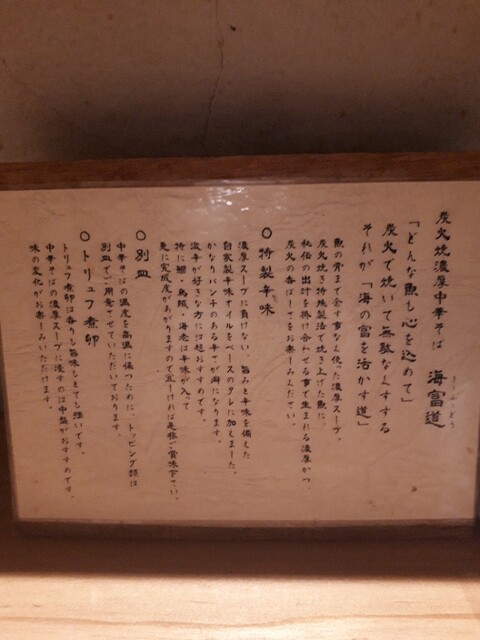 炭火焼濃厚中華そば 海富道
しーふうどう
「どんな魚も心を込めて」
炭火で焼いて無駄なくする
それが「海の富を活かす道」
魚の骨まで余す事なく使った濃厚スープ。
炭火焼き特殊製法で焼き上げた魚に、
秘伝の出汁を掛け合わせる事で生まれる濃厚かつ、
炭火の香ばしさをお楽しみください。
○特製辛味
濃厚スープに負けない、旨みと辛味を備えた
自家製辛味オイルをベースのタレに加えました。
かなりパンチのある辛さが癖になります。
激辛が好きな方には超おすすめです。
特に鯛・烏賊・海老は辛味が入って
更に完成度があがりますので宜しければ是非ご賞味下さい。
○別皿
中華そばの温度を高温に保つために、トッピング類は
別皿でご用意させていただいております。
○トリュフ煮卵
トリュフ煮卵は香りも旨味もとても強いです。
中華そばの濃厚スープに浸すのは中盤がおすすめです。
味の変化がお楽しみいただけます。